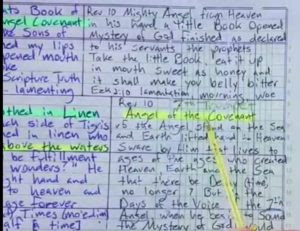 nts Book of
ngel Covenant
e Sons of
hed my lips
opened mouth
ke
Scripture Truth
lamenting
Rev 10 Mighty Angel from Heaven
in his hand a little Book Opened
Mystery of God finished as declared
to his servants the prophets
Take the little Book, eat it up
in mouth sweet as honey and
it shall make you belly bitter
Eze 2:10 lamentation mourning woe
othed in Linen
side of Tigris
ed in linen
above the waters
be fulfillment
wonders? " He
ght hand and
to heaven and
age forever
of Times (mo'edim)
half a time]
Rev 10
Angel of the Covenant
the Angel stand on the Sea
and Earth lifted hand
Swore by Him that lives to
ages of the ages who created
Heaven Earth and the Sea
that there be Delay (time)
no longer 7 But the
Days of the Voice 7th
Angel, when he begin to Sound
the Mystery of God